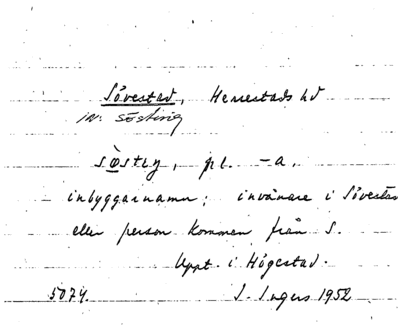 Sövestad, Herrestads hd
in: Söstring
sɷ̀stiŋ, pl. -a,
inbyggarnamn; invånare i Sövestad
eller person kommen från S.
Uppt. i Högestad.
5074. I. Ingers 1952